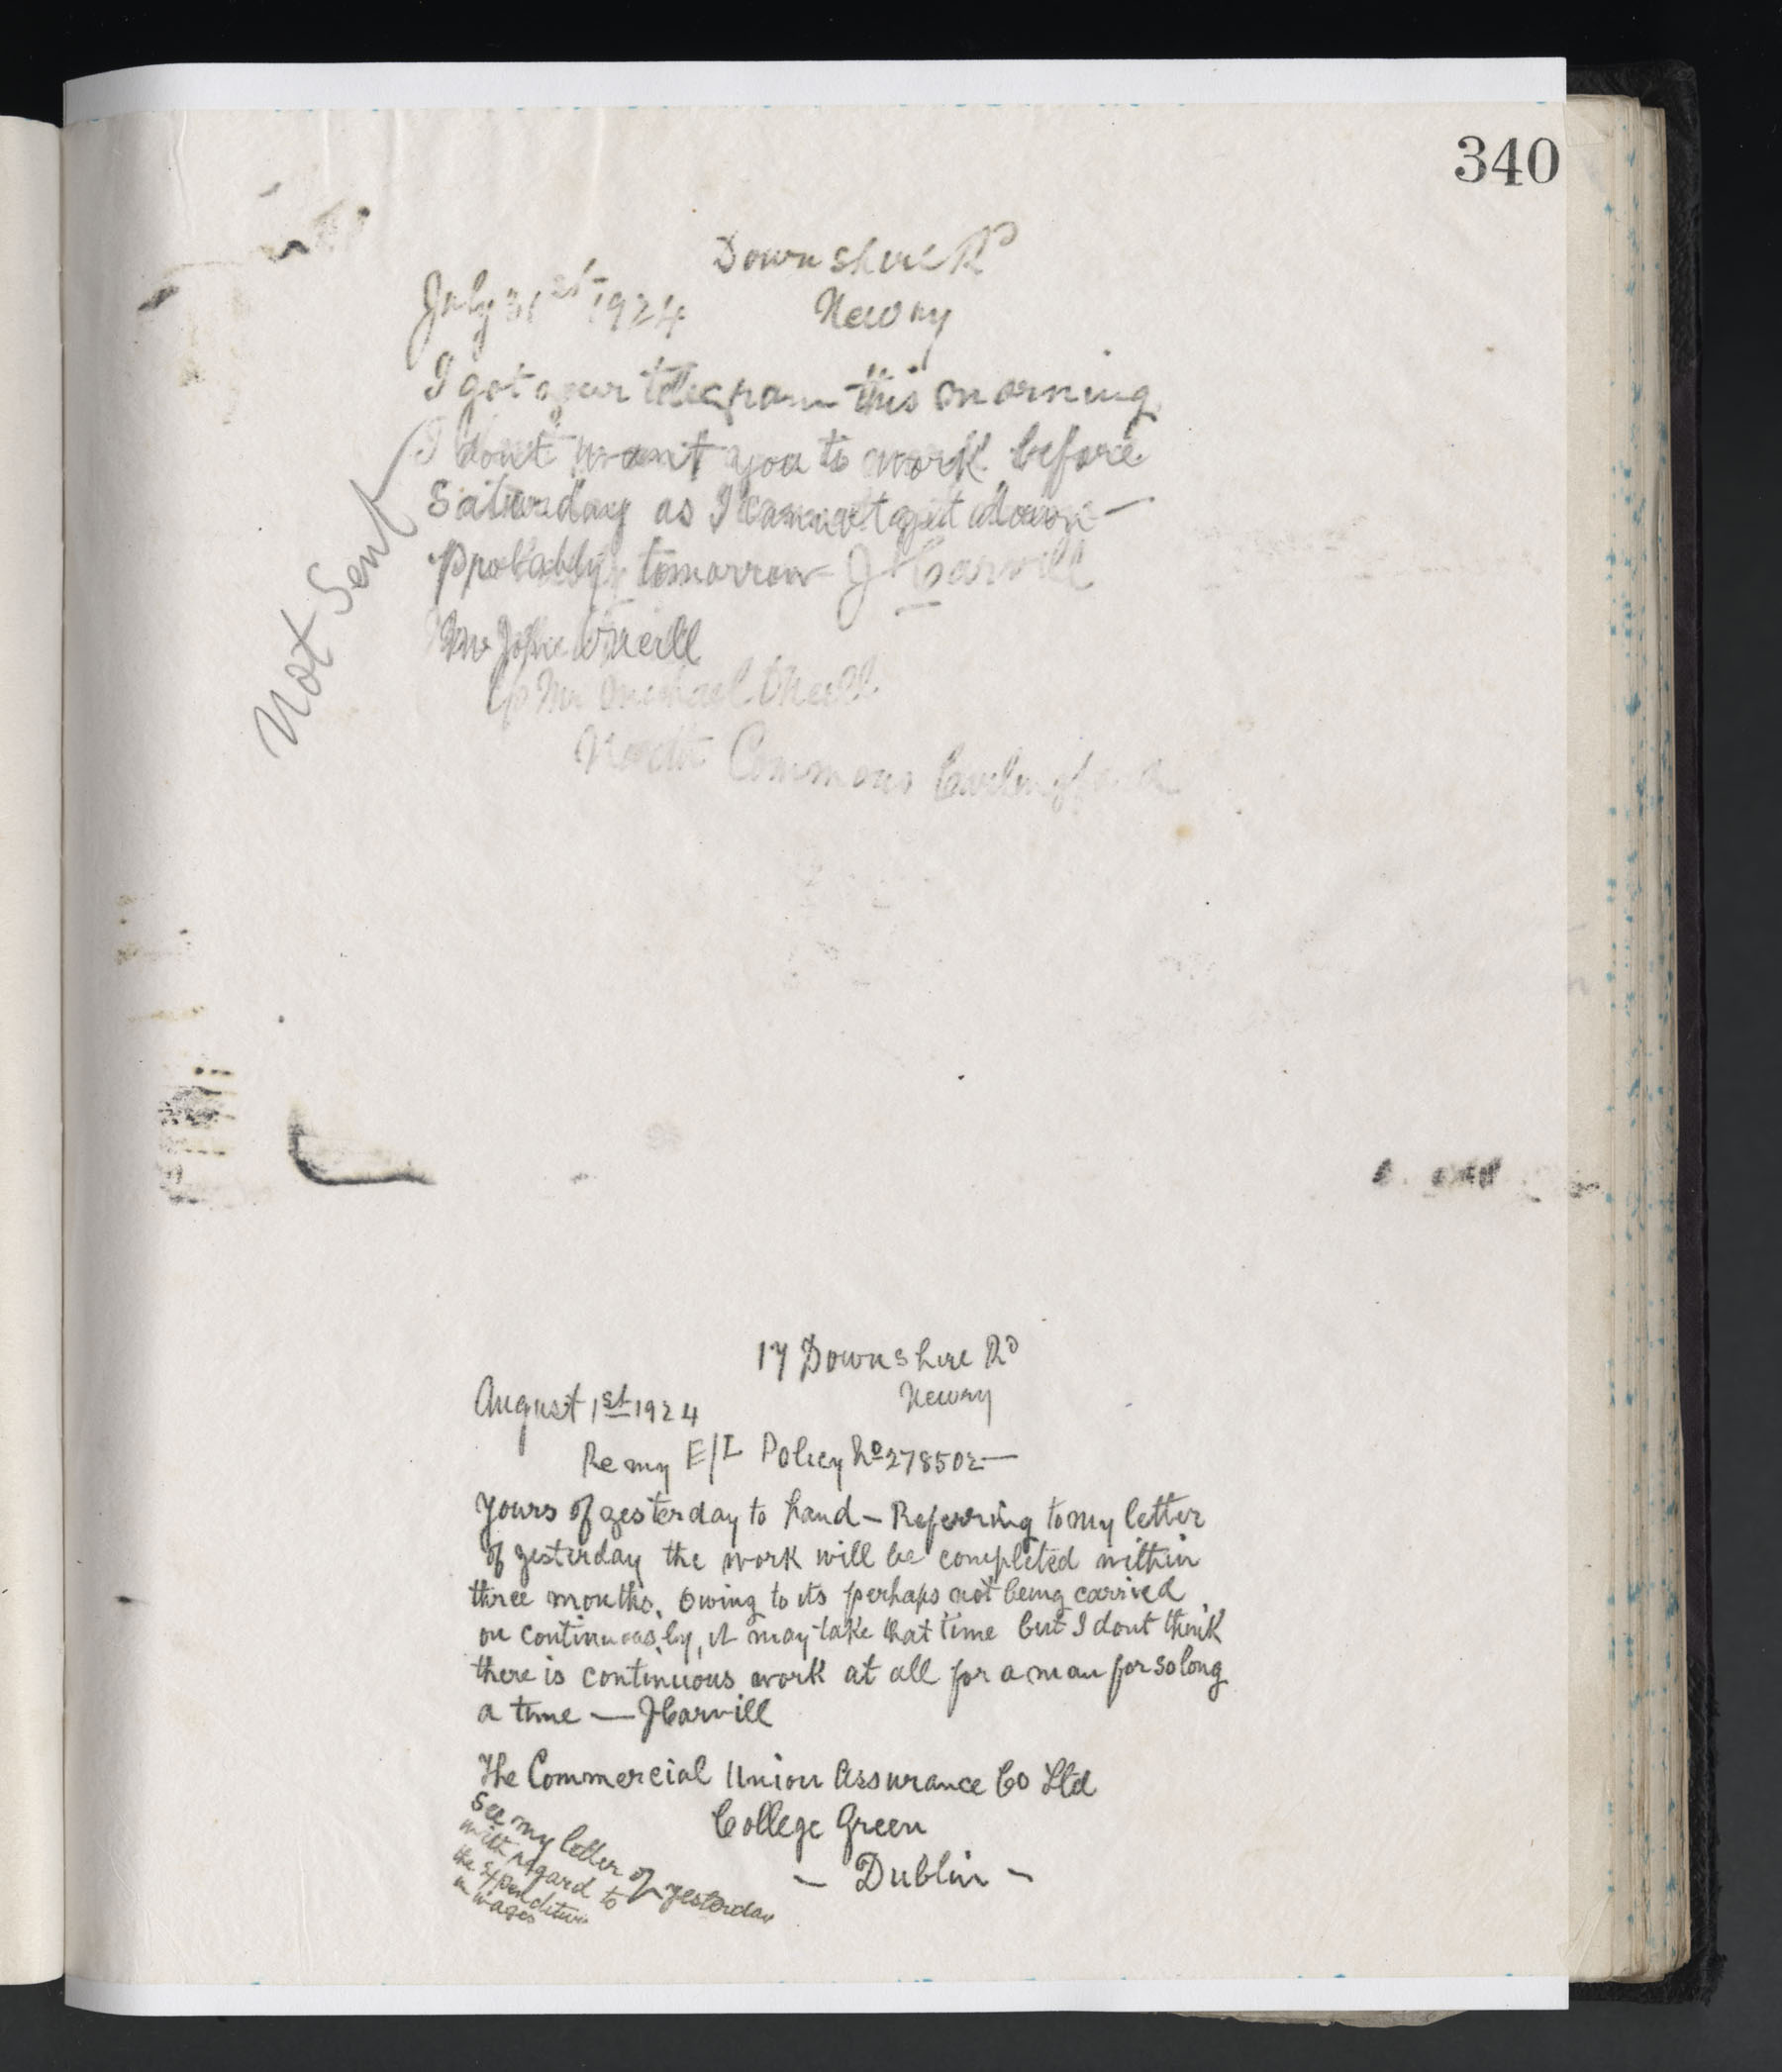 340
Downshire Rd
July 31st 1924 Newry
I got your telegram this morning
I dont want you to work before
Saturday as I cannot get down
probably tomorrow J Carvill
Not Sent
Mr John O'Neill
c/o Mr Michael O'Neill
North Commons Carlingford
17 Downshire Rd
Newry
August 1st 1924
Re my E/L Policy No 278502—
Yours of yesterday to hand — Referring to my letter
of yesterday the work will be completed within
three months. Owing to its perhaps not being carried
on continuously, it may take that time but I dont think
there is continuous work at all for a man for so long
a time — J Carvill
The Commercial Union Assurance Co Ltd
College Green
— Dublin —
See my letter of yesterday
with regard to
the expenditure
in wages